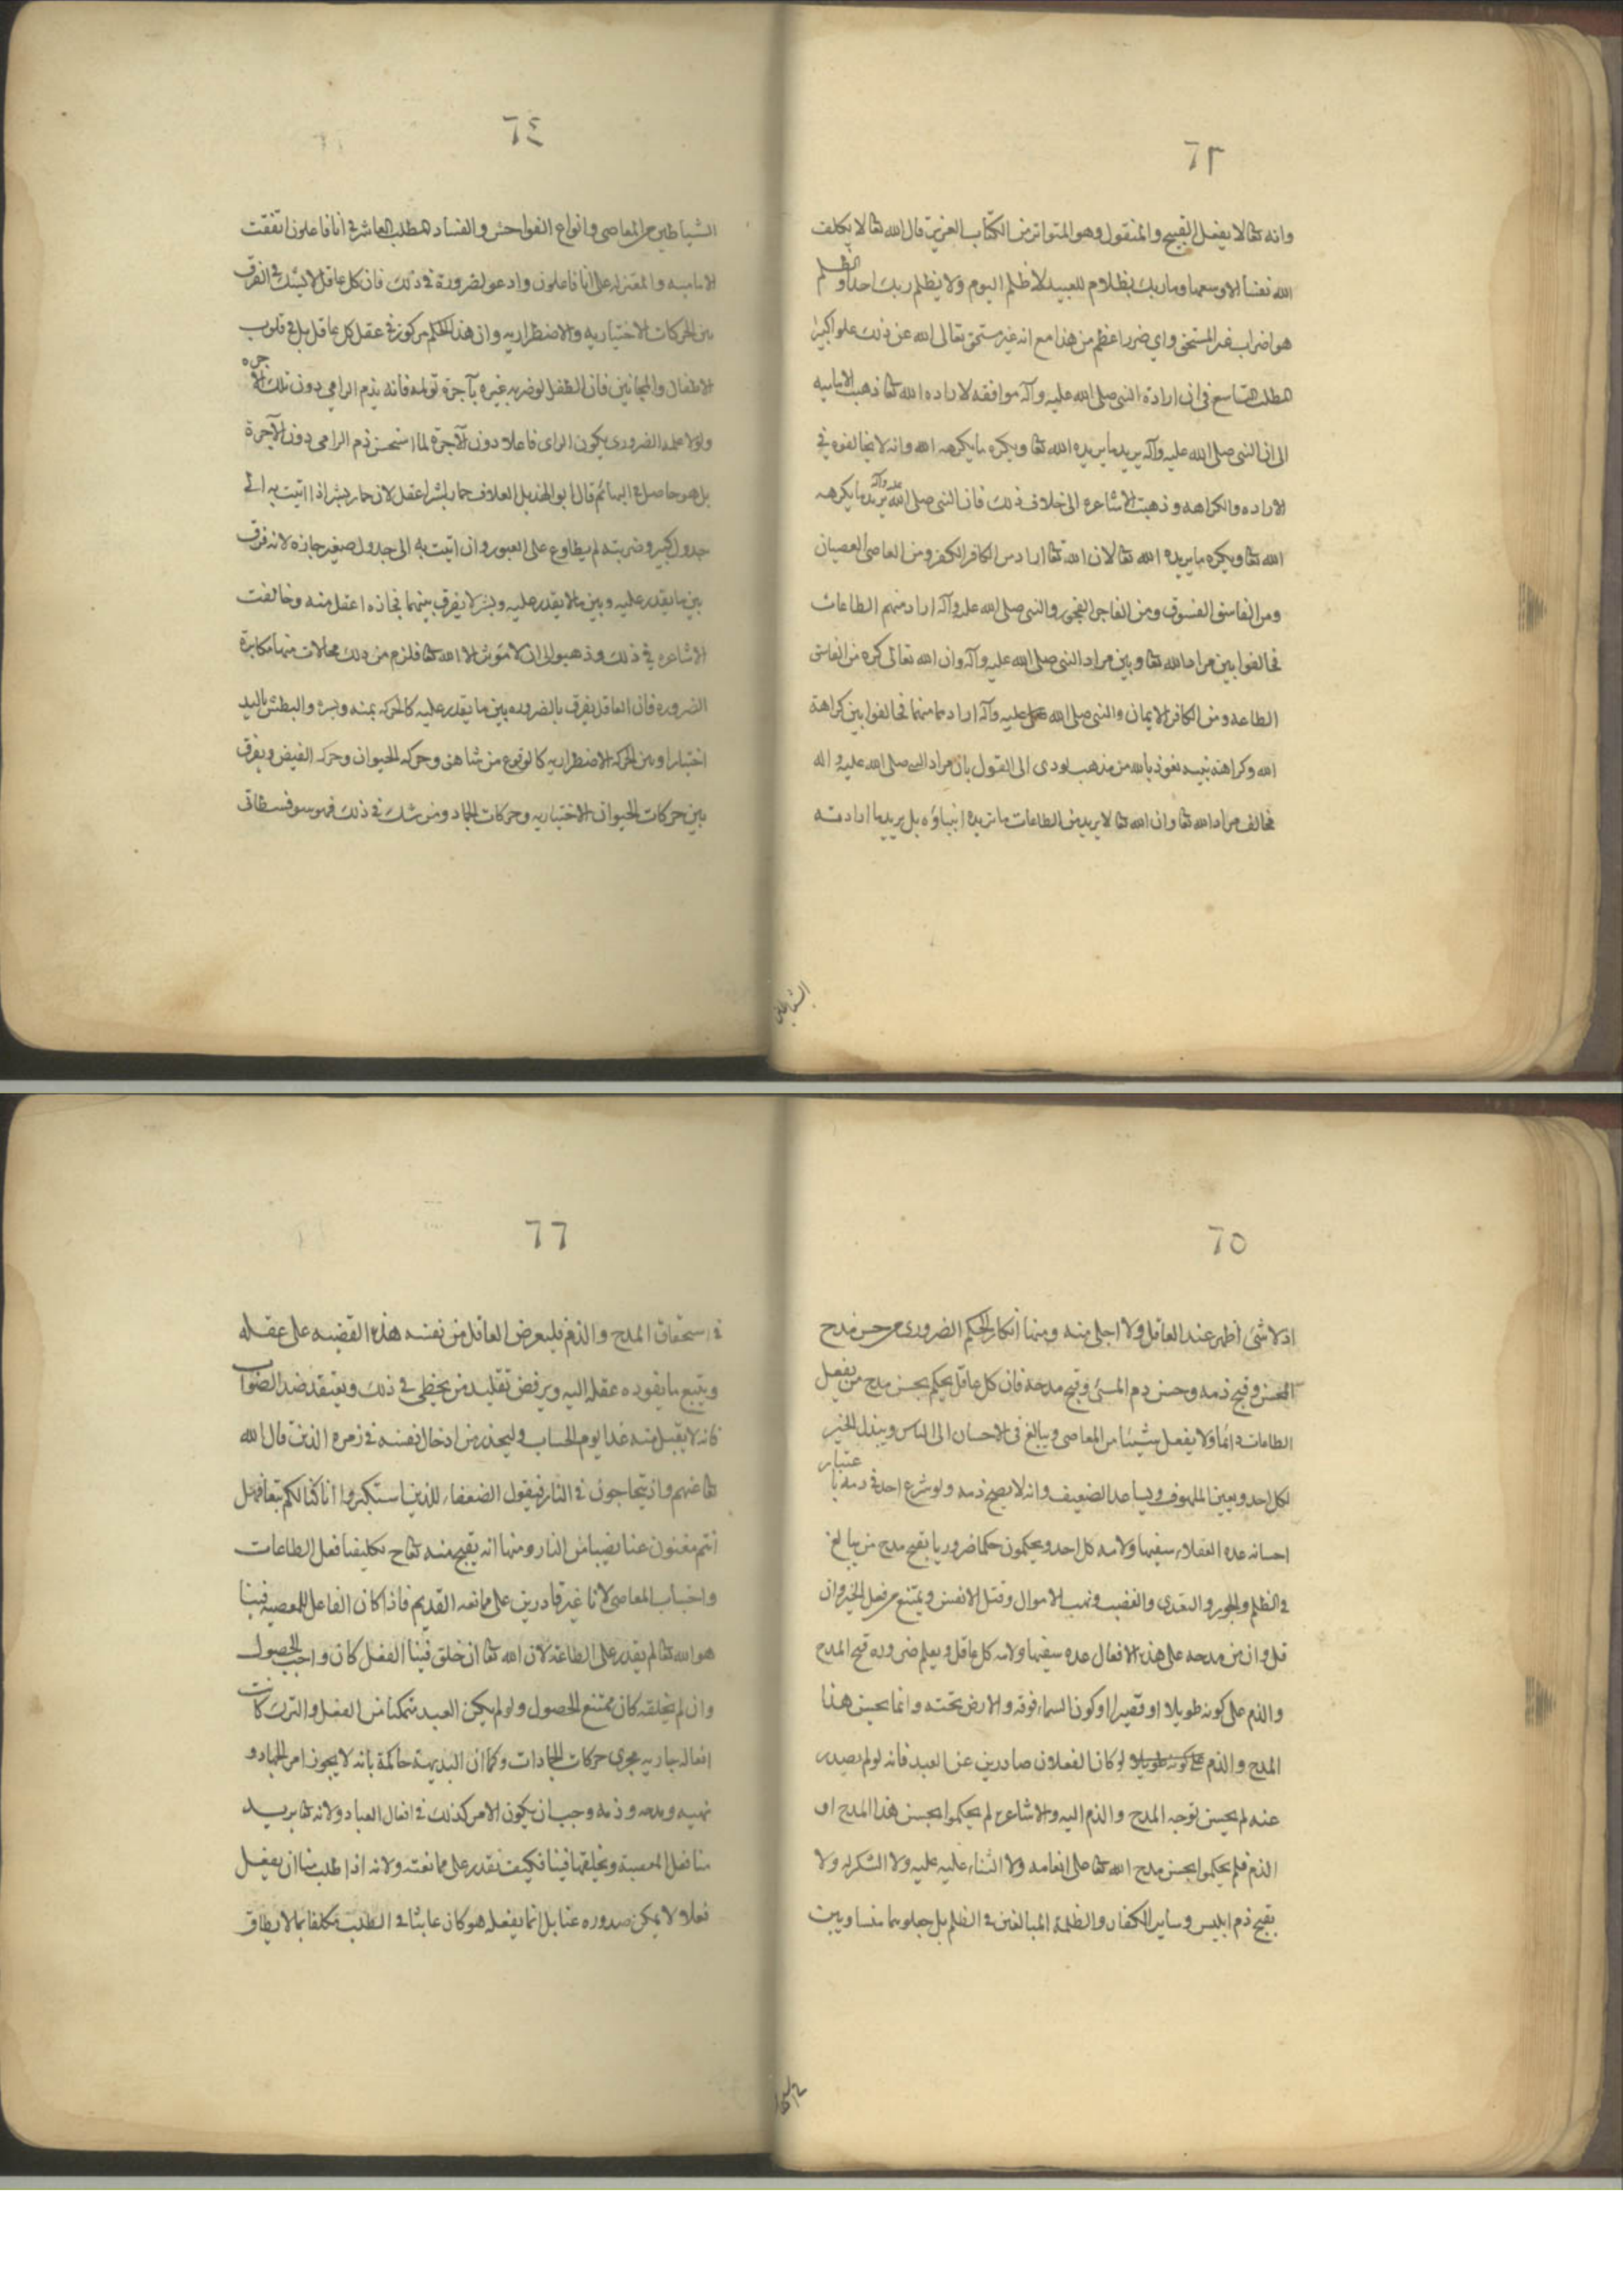 ٦٣
وانه تعا لا يفعل القبيح والمنقول وهو المتواتر من الكتاب العزيز قال الله تعا لا يكلف
الله نفسا الا وسعها وما ربك بظلام للعبيد لا ظلم اليوم ولا يظلم ربك احدا والظلم
هو اضرار غير المستحق واي ضرر اعظم من هذا مع انه غير مستحق تعالى الله عن ذلك علوا كبيرا
المطلب التاسع في ان ارادة النبي صلى الله عليه وآله موافقه لاراده الله تعا ذهبت الاماميه
الى ان النبي صلى الله عليه وآله يريد ما يريده الله تعا ويكره ما يكرهه الله وانه لا يخالفوه في
الاراده والكراهه وذهبت الاشاعره الى خلاف ذلك فان النبي صلى الله عليه وآله يريد ما يكرهه
الله تعا ويكره ما يريده الله تعا لان الله تعا اراد من الكافر الكفر ومن العاصي العصيان
ومن الفاسق الفسوق ومن الفاجر الفجور والنبي صلى الله عليه وآله اراد منهم الطاعات
فخالفوا بين مراد الله تعا وبين مراد النبي صلى الله عليه وآله وان الله تعالى كره من الفاسق
الطاعه ومن الكافر الايمان والنبي صلى الله عليه وآله ارادهما منهما فخالفوا بين كراهة
الله وكراهة نبيه نعوذ بالله من مذهب يودى الى القول بان مراد النبي صلى الله عليه واله
مخالف مراد الله تعا وان الله تعا لا يريد من الطاعات ما تريده انبياؤه بل يريد ما ارادته
الشياطين
٦٤
الشياطين من المعاصي وانواع الفواحش والفساد المطلب العاشر في انا فاعلون اتفقت
الاماميه والمعتزله على انا فاعلون وادعو الضرورة في ذلك فان كل عاقل لا يشك في الفرق
بين الحركات الاختياريه والاضطراريه وان هذا الحكم مركوز في عقل كل عاقل بل في قلوب
الاطفال والمجانين فان الطفل لو ضربه غيره بآجرة تولمه فانه يذم الرامي دون تلك الآجره
ولولا علمه الضروري بكون الرامي فاعلا دون الآجرة لما استحسن ذم الرامي دون الآجرة
بل هو حاصل في البهائم قال ابو الهذيل العلاف حمار بشر اعقل من بشر لان حمار بشر اذا اتيت به الى
جدول كبير وضربته لم يطاوع على العبور وان اتيت به الى جدول صغير جازه لانه فرق
بين ما يقدر عليه وبين ما لا يقدر عليه وبشر لا يفرق بينهما فحماره اعقل منه وخالفت
الاشاعره في ذلك وذهبوا الى ان لا موثر الا الله تعا فلزم من ذلك محالات منها مكابرة
الضروره فان العاقل يفرق بالضروره بين ما يقدر عليه كالحركه يمنه ويسرة والبطش باليد
اختيارا وبين الحركه الاضطراريه كالوقوع من شاهق وحركه الحيوان وحركه النبض ويفرق
بين حركات الحيوان الاختياريه وحركات الجماد ومن شك في ذلك فهو سوفسطائي
٦٥
اذ لا شئ اظهر عند العاقل ولا اجلى منه ومنها انكار الحكم الضروري من حسن مدح
المحسن وقبح ذمه وحسن ذم المسئ وقبح مدحه فان كل عاقل يحكم بحسن مدح من يفعل
الطاعات دائما ولا يفعل شيئا من المعاصي ويبالغ في الاحسان الى الناس ويبذل الخير
لكل احد ويعين الملهوف ويساعد الضعيف وانه لا يصح ذمه ولو شرع احد في ذمه باعتبار
احسانه عده العقلاء سفيها ولامه كل احد ويحكمون حكما ضروريا بقبح مدح من يبالغ
في الظلم والجور والتعدي والغضب ونهب الاموال وقتل الانفس ويمتنع من فعل الخير وان
قل وان من مدحه على هذه الافعال عده سفيها ولامه كل عاقل ويعلم ضروره قبح المدح
والذم على كونه طويلا او قصيرا او كون السماء فوقه والارض تحته وانما يحسن هذا
المدح والذم لو كان الفعلان صادرين عن العبد فانه لو لم يصدر
عنه لم يحسن توجه المدح والذم اليه والاشاعره لم يحكموا بحسن هذا المدح او
الذم فلم يحكموا بحسن مدح الله تعا على انعامه ولا الثناء عليه عليه ولا الشكر له ولا
بقبح ذم ابليس وسائر الكفار والظلمة المبالغين في الظلم بل جعلوهما متساويين
٦٦
في استحقاق المدح والذم فليعرض العاقل من نفسه هذه القضيه على عقله
ويتبع ما يقوده عقله اليه ويرفض تقليد من يخطى في ذلك ويعتقد ضد الصواب
فانه لا يقبل منه غدا يوم الحساب وليحذر من ادخال نفسه في زمره الذين قال الله
تعا عنهم واذ يتحاجون في النار فيقول الضعفاء للذين استكبروا انا كنا لكم تبعا فهل
انتم مغنون عنا نصيبا من النار ومنها انه يقبح منه تعا ح تكليفنا فعل الطاعات
واجتناب المعاصي لانا غير قادرين على ممانعه القديم فاذا كان الفاعل للمعصيه فينا
هو الله تعا لم يقدر على الطاعة لان الله تعا ان خلق فينا الفعل كان واجب الحصول
وان لم يخلقه كان ممتنع الحصول ولو لم يكن العبد متمكنا من الفعل والترك كانت
افعاله جاريه مجرى حركات الجمادات وكما ان البديهة حاكمة بانه لا يجوز امر الجماد و
نهيه ومدحه وذمه وجب ان يكون الامر كذلك في افعال العباد ولانه تعا يريد
منا فعل المعصية ويخلقها فينا فكيف نقدر على ممانعته ولانه اذا طلب منا ان نفعل
فعلا ولا يمكن صدوره عنا بل انما يفعله هو كان عابثا في الطلب مكلفا بما لا يطاق